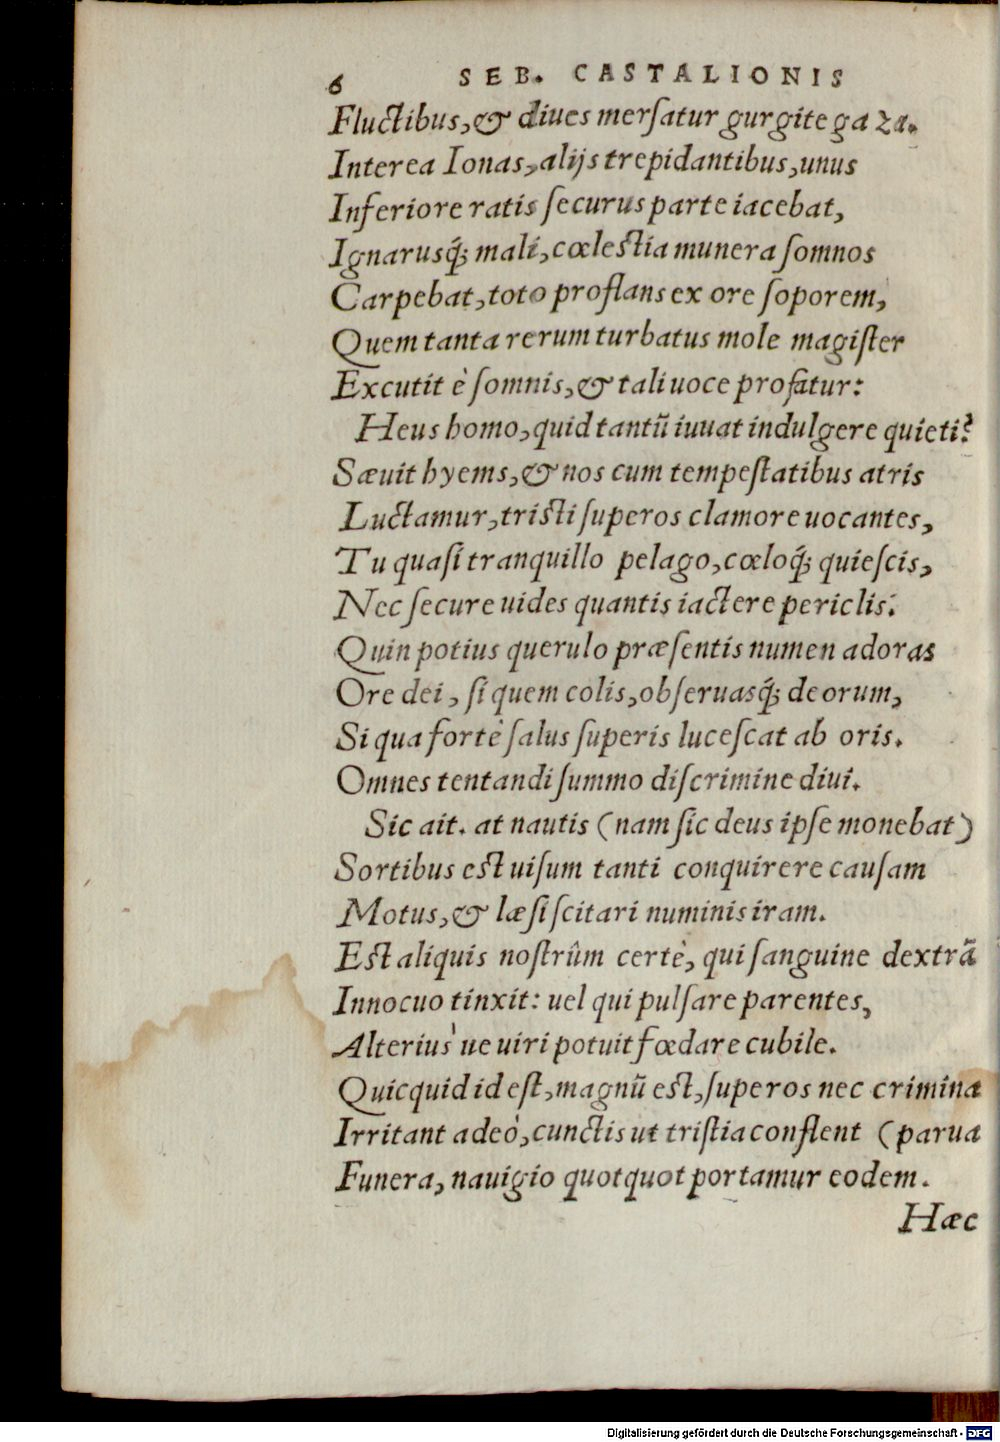 6 SEB. CASTALIONIS
Fluctibus, & diues mersatur gurgite gaza.
Interea Ionas, alijs trepidantibus, unus
Inferiore ratis securus parte iacebat,
Ignarusq́; mali, cœlestia munera somnos
Carpebat, toto proflans ex ore soporem,
Quem tanta rerum turbatus mole magister
Excutit è somnis, & tali uoce profatur:
Heus homo, quid tantũ iuuat indulgere quieti?
Sæuit hyems, & nos cum tempestatibus atris
Luctamur, tristi superos clamore uocantes,
Tu quasi tranquillo pelago, cœloq́; quiescis,
Nec secure uides quantis iactere periclis.
Quin potius querulo præsentis numen adoras
Ore dei, si quem colis, obseruasq́; deorum,
Si qua fortè salus superis lucescat ab oris.
Omnes tentandi summo discrimine diui.
Sic ait. at nautis (nam sic deus ipse monebat)
Sortibus est uisum tanti conquirere causam
Motus, & læsi scitari numinis iram.
Est aliquis nostrûm certè, qui sanguine dextrã
Innocuo tinxit: uel qui pulsare parentes,
Alterius ùe uiri potuit fœdare cubile.
Quicquid id est, magnũ est, superos nec crimina
Irritant adeò, cunctis ut tristia conflent (parua
Funera, nauigio quotquot portamur eodem.
Hæc
Digitalisierung gefördert durch die Deutsche Forschungsgemeinschaft - DFG